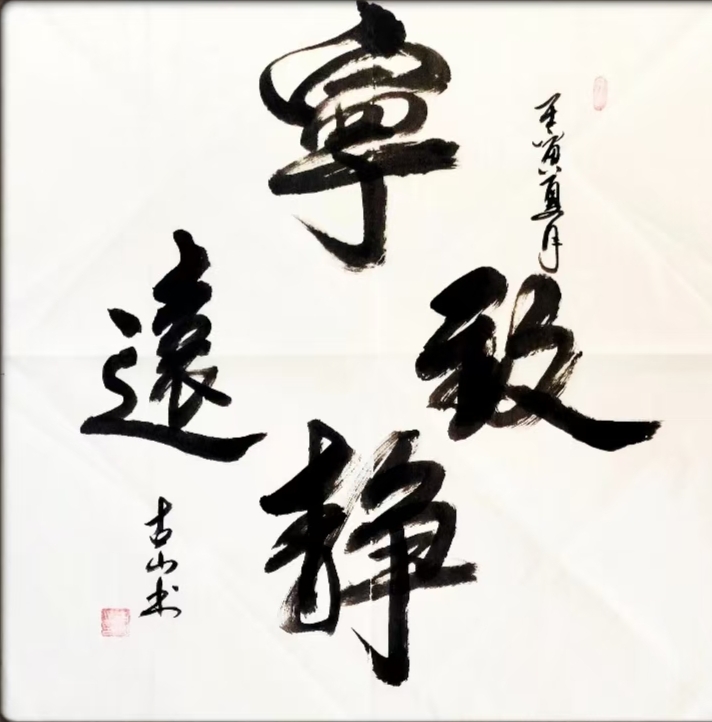 壬寅夏月
寧
靜
致
遠
古山书